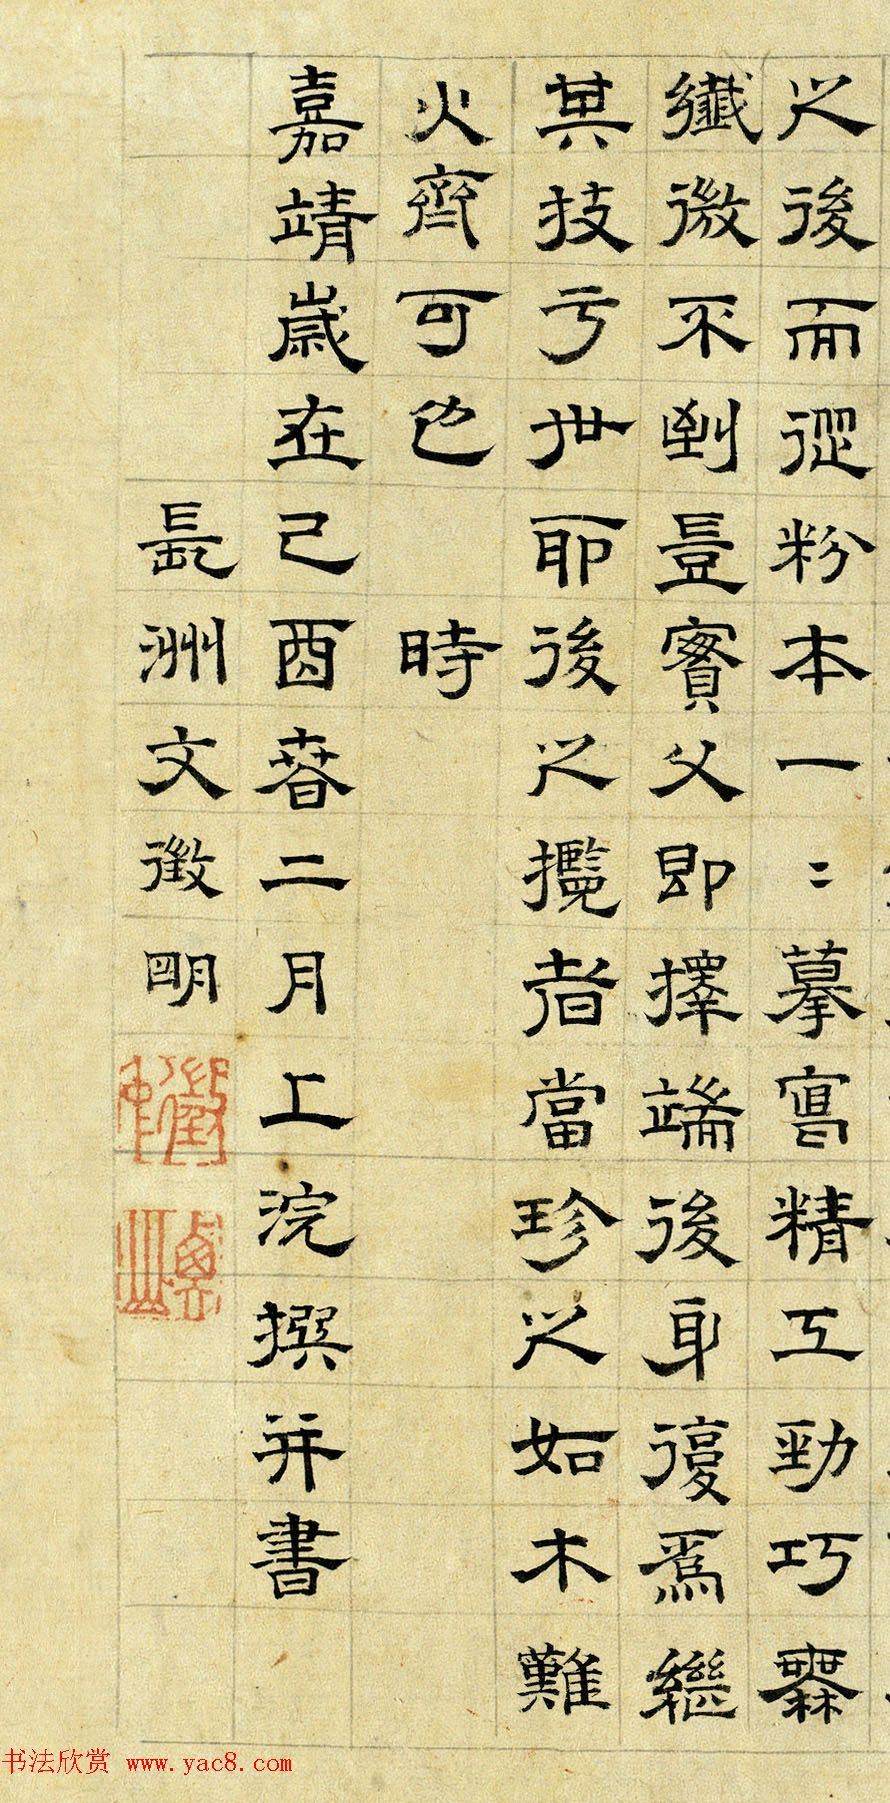 之後而從粉本一〻摹寫精工勁巧無
纖微不到豈實父即擇端後身復爲繼
其技于世耶後之攬者當珍之如木難
火齊可也 時
嘉靖歲在己酉春二月上浣撰并書
長洲文徵明
书法欣赏 www.yac8.com